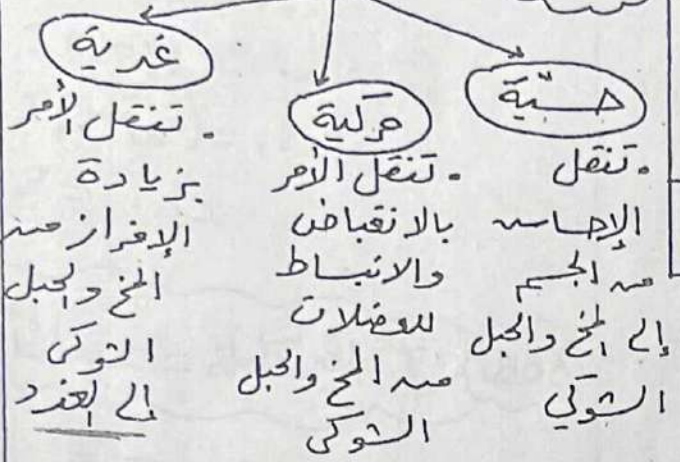 حسّية
• تنقل
الإحساس
من الجسم
إلى المخ والحبل
الشوكي
حركية
• تنقل الأمر
بالانقباض
والانبساط
للعضلات
من المخ والحبل
الشوكى
غدية
• تنقل الأمر
بزيادة
الإفراز من
المخ والحبل
الشوكى
إلى الغدد